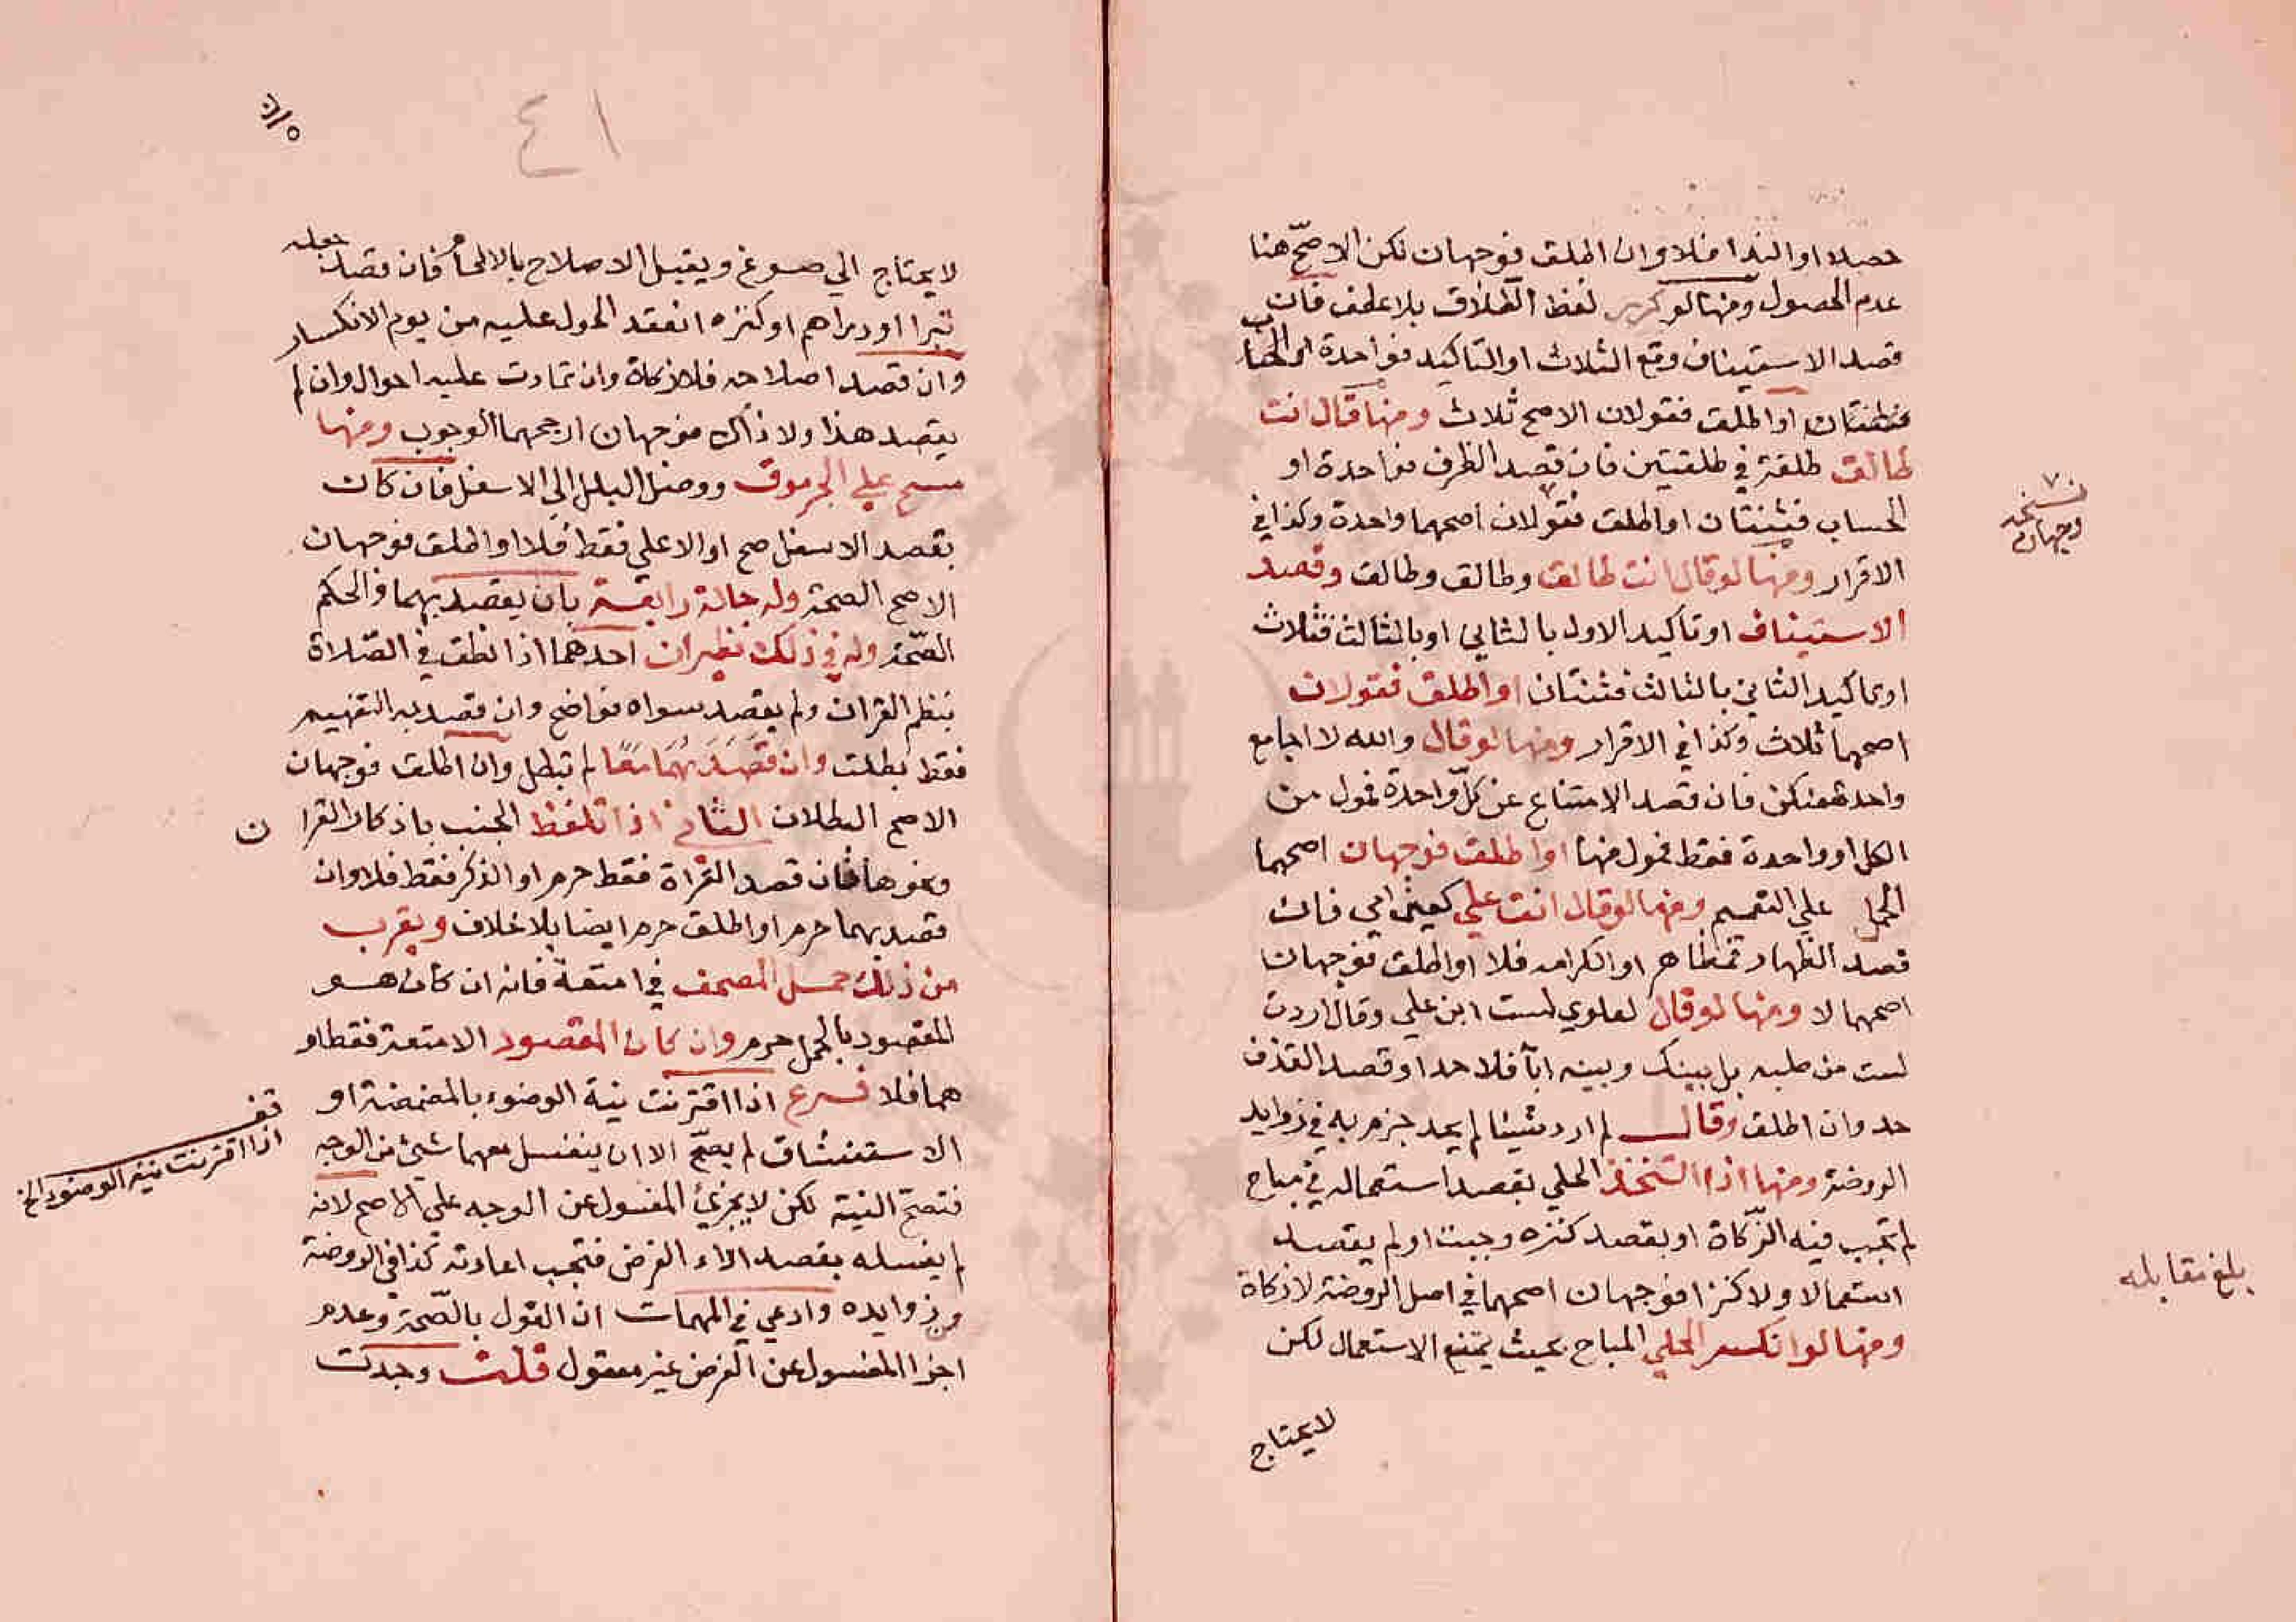 حصلا او الندا فلا وان اطلق فوجهان لكن الاصحّ هنا
عدم الحصول ومنها لو كرر لفظ الطلاق بلا عطف فان
قصد الاستيناف وقع الثلاث او التاكيد فواحدة او
فثنتان او اطلق فقولان الاصح ثلاث ومنها قال انت
طالق طلقة في طلقتين فان قصد الظرف فواحدة او
الحساب فثنتان او اطلق فقولان اصحهما واحدة وكذا في
نسخة
وجهان
الاقرار ومنها لو قال انت طالق وطالق وطالق وقصد
الاستيناف او تاكيد الاول بالثاني او بالثالث فثلاث
او تاكيد الثاني بالثالث فثنتان او اطلق فقولان
اصحهما ثلاث وكذا في الاقرار ومنها لو قال والله لا اجامع
واحدة منكن فان قصد الامتناع عن كلّ واحدة فمول من
الكل او واحدة فقط فمول منها او اطلق فوجهان اصحهما
الحمل علي التعميم ومنها لو قال انت علي كعين امي فان
قصد الظهار فمظاهر او الكرامة فلا او اطلق فوجهان
اصحهما لا ومنها لو قال لعلوي لست ابن علي وقال اردت
لست من صلبه بل بينك وبينه ابآ فلا حد او قصد القذف
حد وان اطلق وقال لم ارد شيئا لم يحد جزم به في زوايد
الروضة ومنها اذا اتخذ الحلي بقصد استعماله في مباح
لم تجب فيه الزّكاة او بقصد كنزه وجبت او لم يقصد
استعمالا ولا كنزا فوجهان اصحهما في اصل الروضة لا زكاة
بلغ مقابله
ومنها لو انكسر الحلي المباح بحيث يمتنع الاستعمال لكن
لا يحتاج
٤١
لا يحتاج الي صوغ ويقبل الاصلاح بالالحام فان قصد جعله
تبرا او دراهم او كنزه انعقد الحول عليه من يوم الانكسار
وان قصد اصلاحه فلا زكاة وان تمادت عليه احوال وان لم
يقصد هذا ولا ذاك فوجهان ارجحهما الوجوب ومنها
مسح علي الجرموق ووصل البلل الي الاسفل فان كان
بقصد الاسفل صح او الاعلي فقط فلا او اطلق فوجهان
الاصح الصحة وله حالة رابعة بان يقصدهما والحكم
الصّحة وله في ذلك نظيران احدهما اذا نطق في الصّلاة
بنظم القران ولم يقصد سواه فواضح وان قصد به التفهيم
فقط بطلت وان قصَدَهُمَا مَعًا لم تبطل وان اطلق فوجهان
الاصح البطلان الثاني اذا تلفظ الجنب باذكار القران
ونحوها فان قصد القراة فقط حرم او الذكر فقط فلا وان
قصد بهما حرم او اطلق حرم ايضا بلا خلاف ويقرب
من ذلك حمل المصحف في امتعة فانه ان كان هو
المقصود بالحمل حرم وان كان المقصود الامتعة فقط او
هما فلا فرع اذا اقترنت نية الوضوء بالمضمضة او
قف
اذا اقترنت نية الوضوء الخ
الاستنشاق لم يصحّ الا ان ينغسل معهما شيئ من الوجه
فتصحّ النية لكن لا يجزئ المغسول عن الوجه علي الاصح لانه
لم يغسله بقصد اداء الفرض فتجب اعادته كذا في الروضة
وزوايده وادعي في المهمات ان القول بالصّحة وعدم
اجزا المغسول عن الفرض غير معقول قلت وجدت